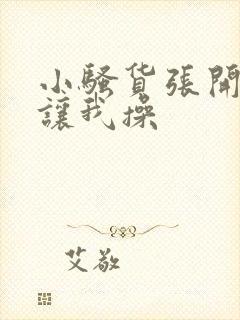 小騷货张開
讓我操
艾敬